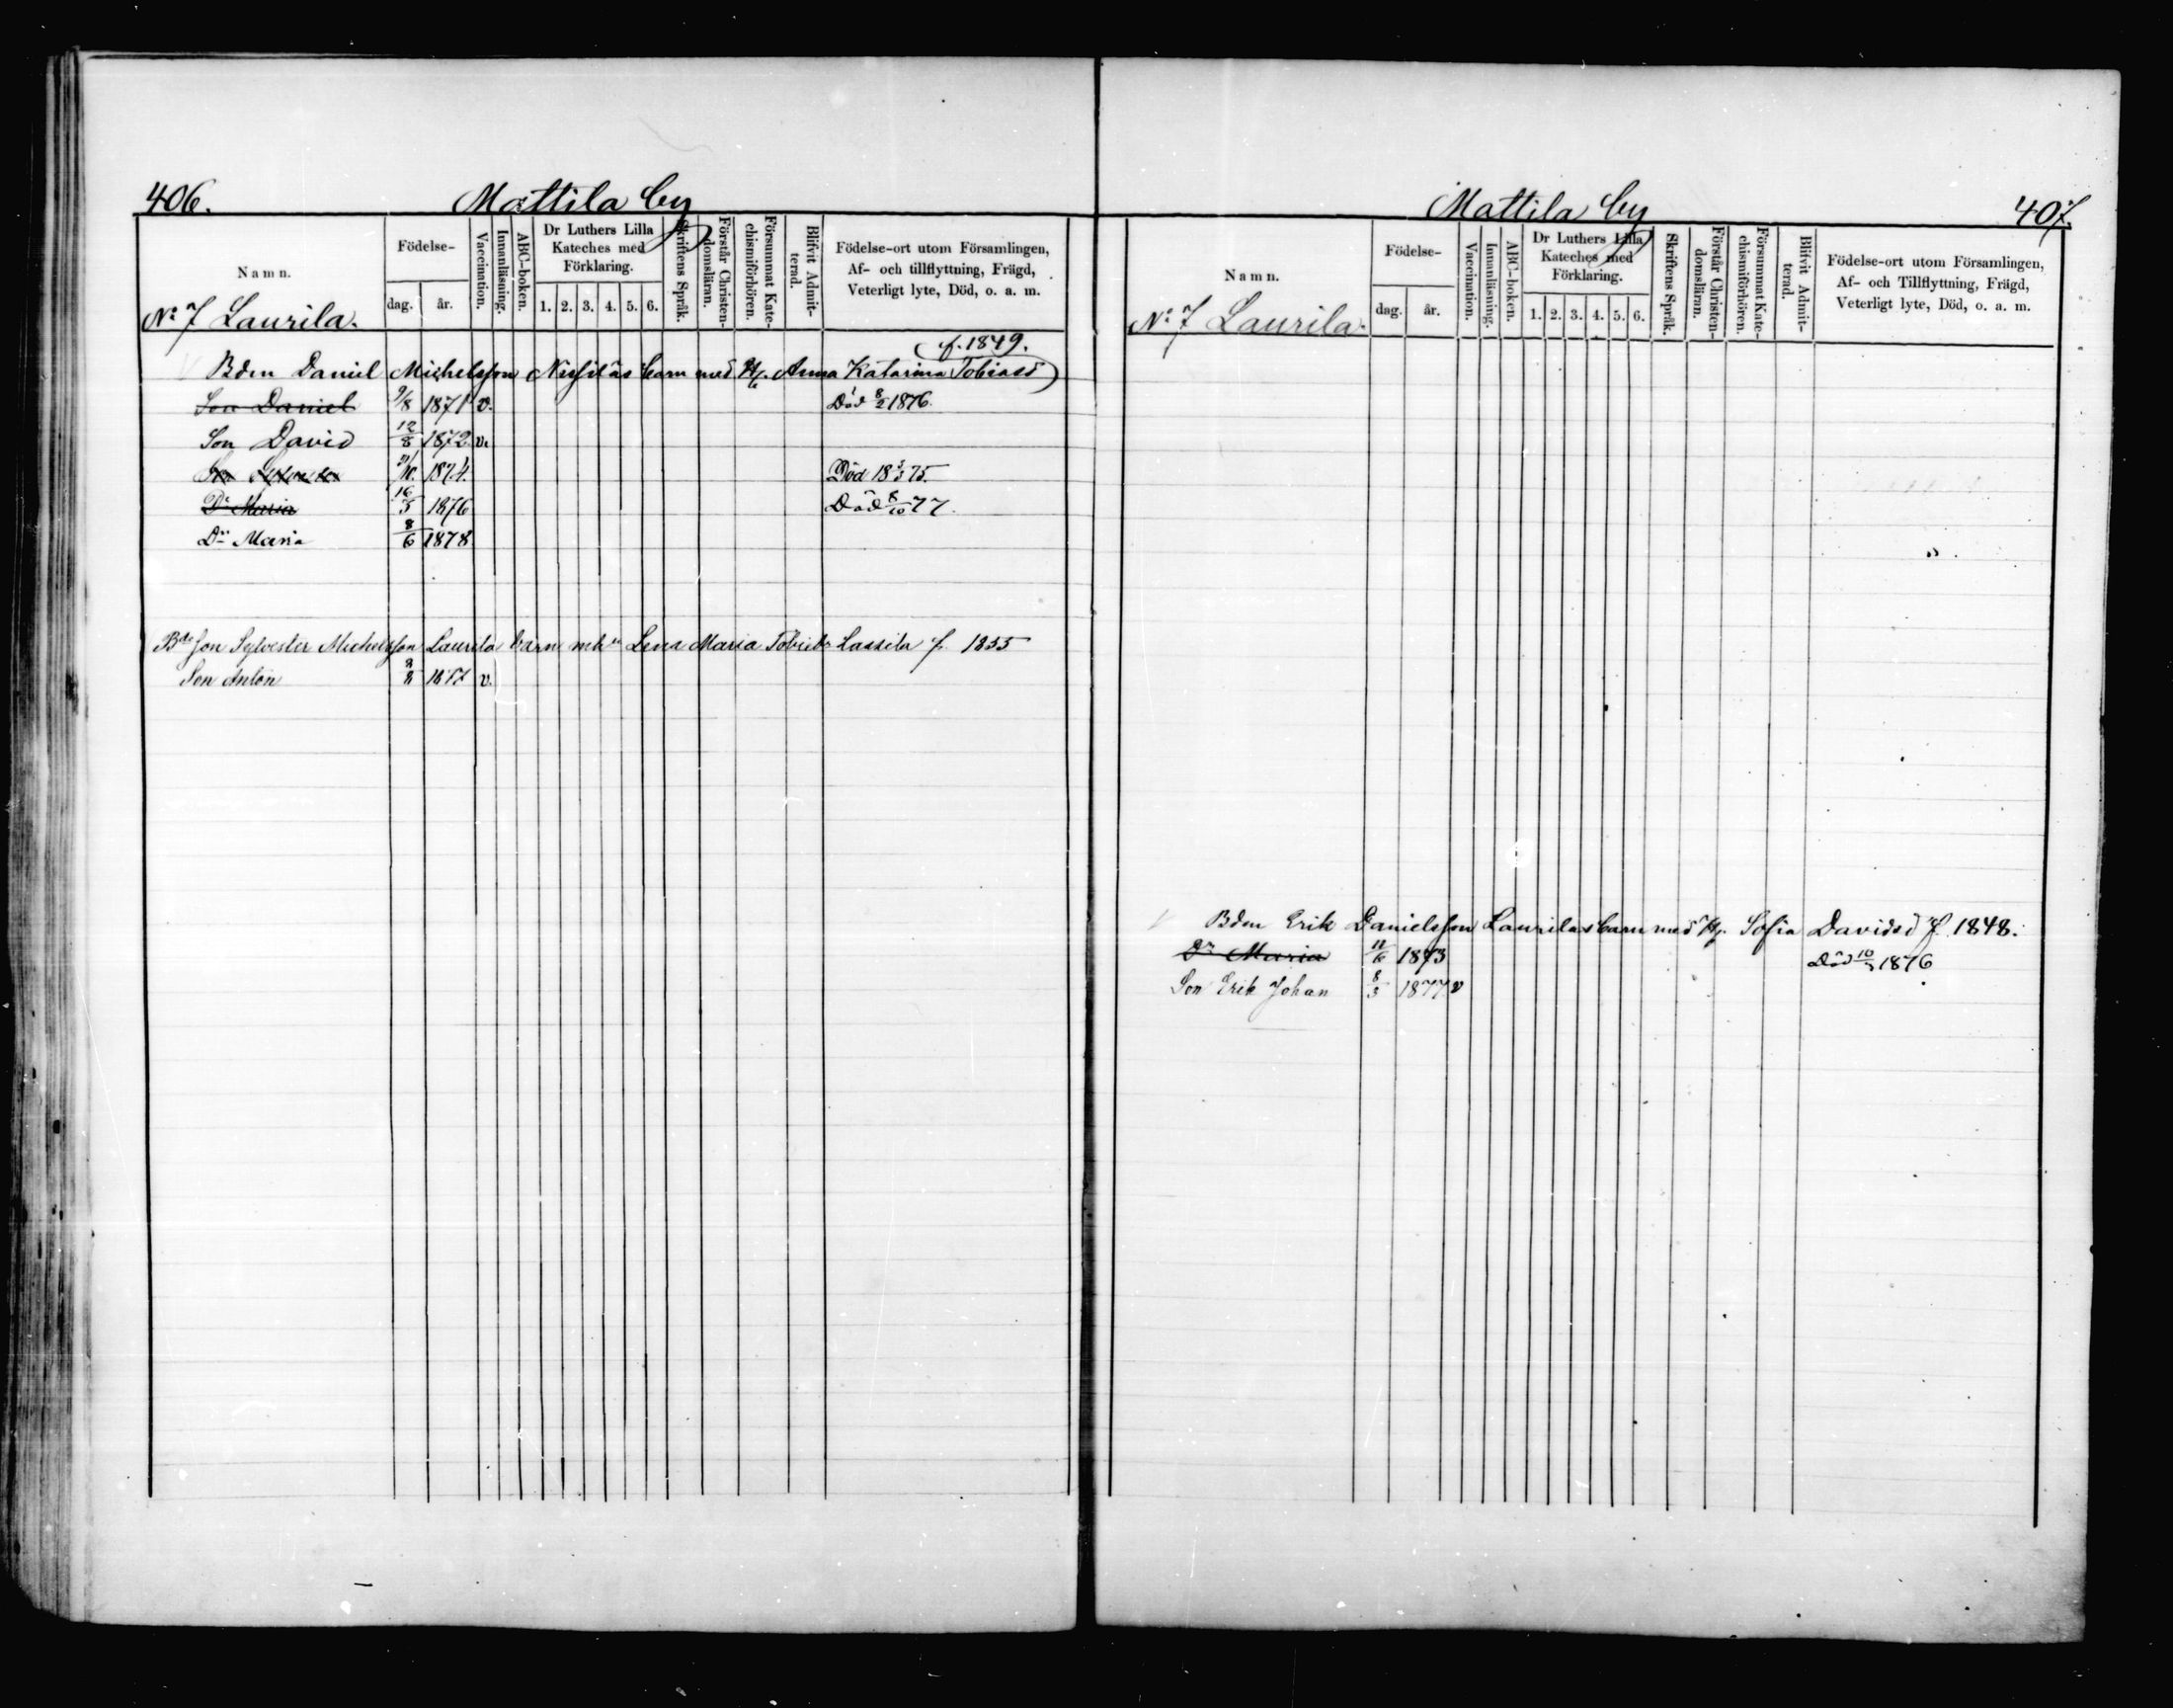 406. Mattila by
Namn. Födelse- dag. år. Vaccination. Innanläsning. ABC-boken. Dr Luthers Lilla Kateches med Förklaring. 1. 2. 3. 4. 5. 6. Skriftens Språk. Förstår Christen-domsläran. Försummat Kate-chismiförhören. Blifvit Admit-terad. Födelse-ort utom Församlingen, Af- och tillflyttning, Frägd, Veterligt lyte, Död, o. a. m.
No 7 Laurila.
f. 1849.
Bden Daniel Michelsson barn med Anna Katarina Tobiasd
Son Daniel 9/8 1871 v. Död 8/2 1876.
Son David 12/8 1872 v.
Son 1874. Död 18 75.
Dr Maria 16/5 1876 Död 8/10 77.
Dr Maria 8/6 1878
Bdeson Sylvester Michelsson Laurila barn Lena Maria Lassila f. 1855
Son Anton v.
Mattila by 407.
Namn. Födelse- dag. år. Vaccination. Innanläsning. ABC-boken. Dr Luthers Lilla Kateches med Förklaring. 1. 2. 3. 4. 5. 6. Skriftens Språk. Förstår Christen-domsläran. Försummat Kate-chismiförhören. Blifvit Admit-terad. Födelse-ort utom Församlingen, Af- och Tillflyttning, Frägd, Veterligt lyte, Död, o. a. m.
No 7 Laurila.
Bden Erik Danielsson Laurilas barn med Hu Sofia Davidsd f. 1848.
Dr Maria 1873 Död 1876
Son Erik Johan 8/3 1877 v